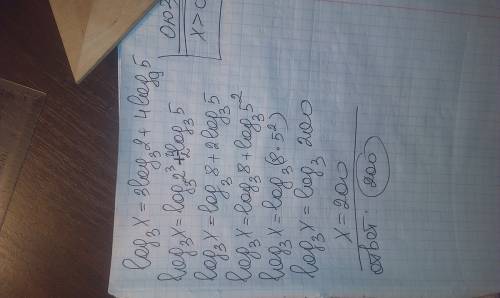 log₃x = 3log₃2 + 4log₉5
ОЮЗ
x>0
log₃x = log₃2³ + 2log₃5
log₃x = log₃8 + 2log₃5
log₃x = log₃8 + log₃5²
log₃x = log₃(8·5²)
log₃x = log₃ 200
x = 200
ответ: 200